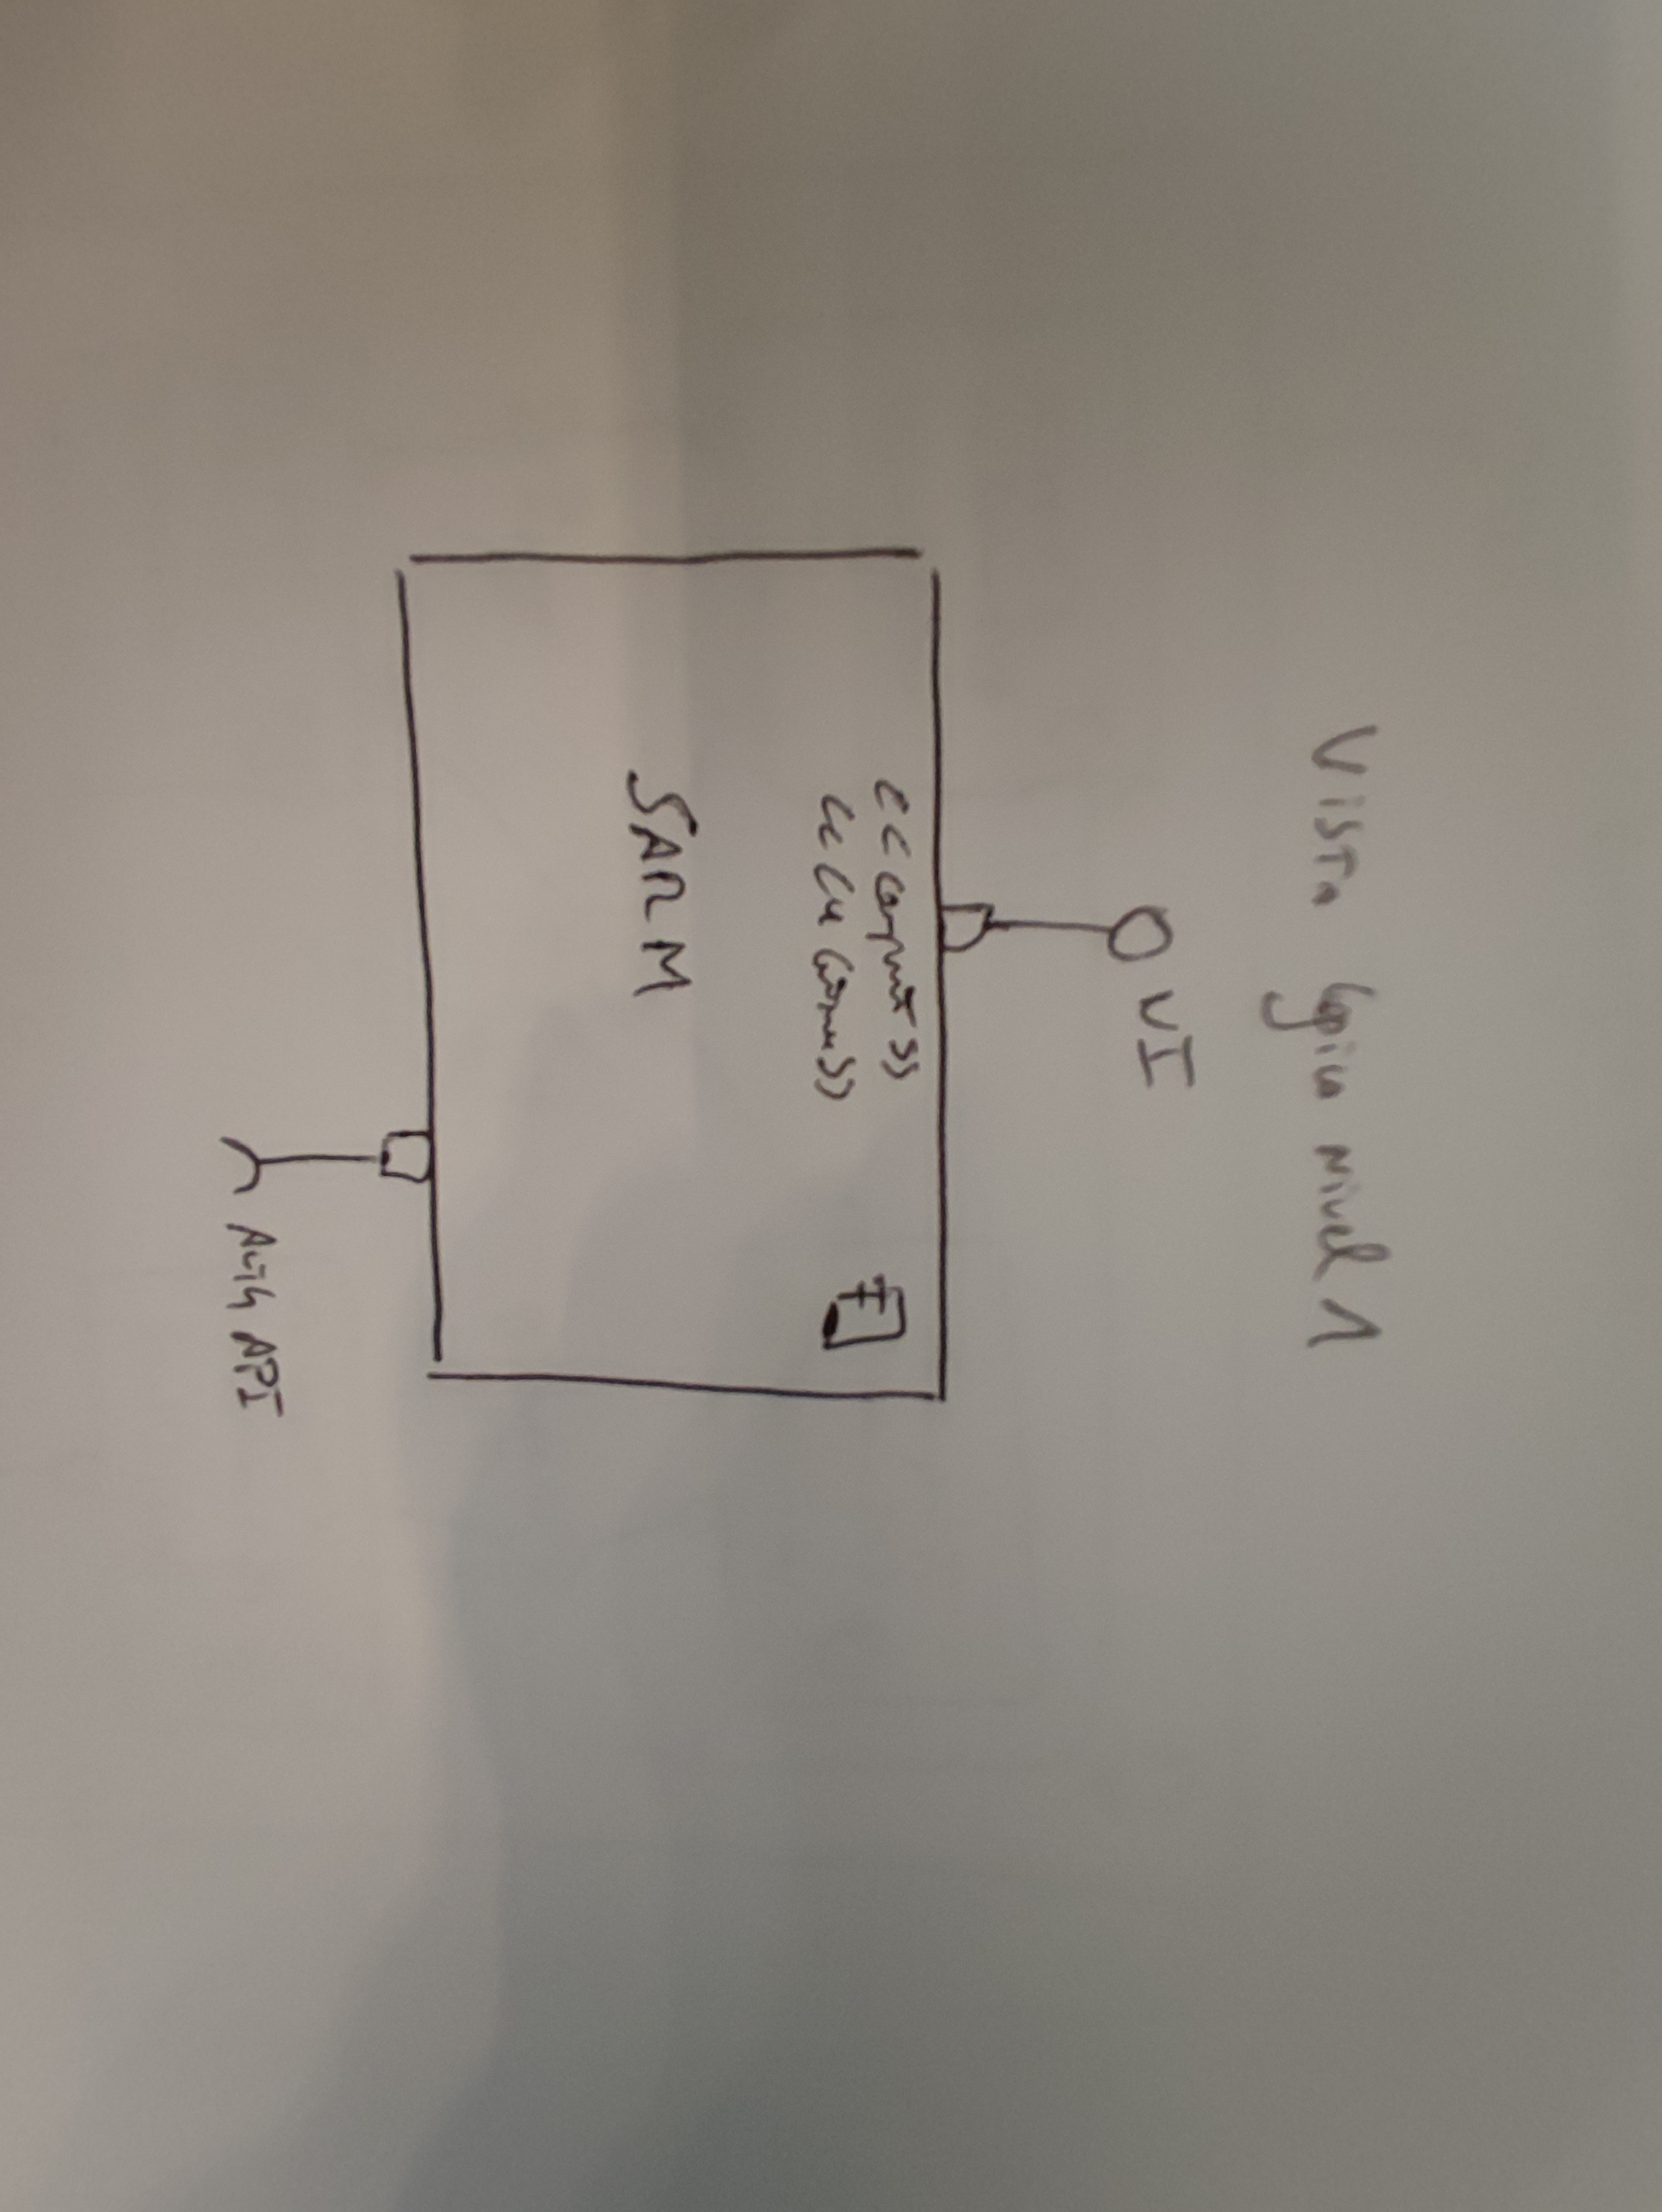 Vista lógica Nivel 1
UI
<<component>>
<<C4 Context>>
SARM
Auth API